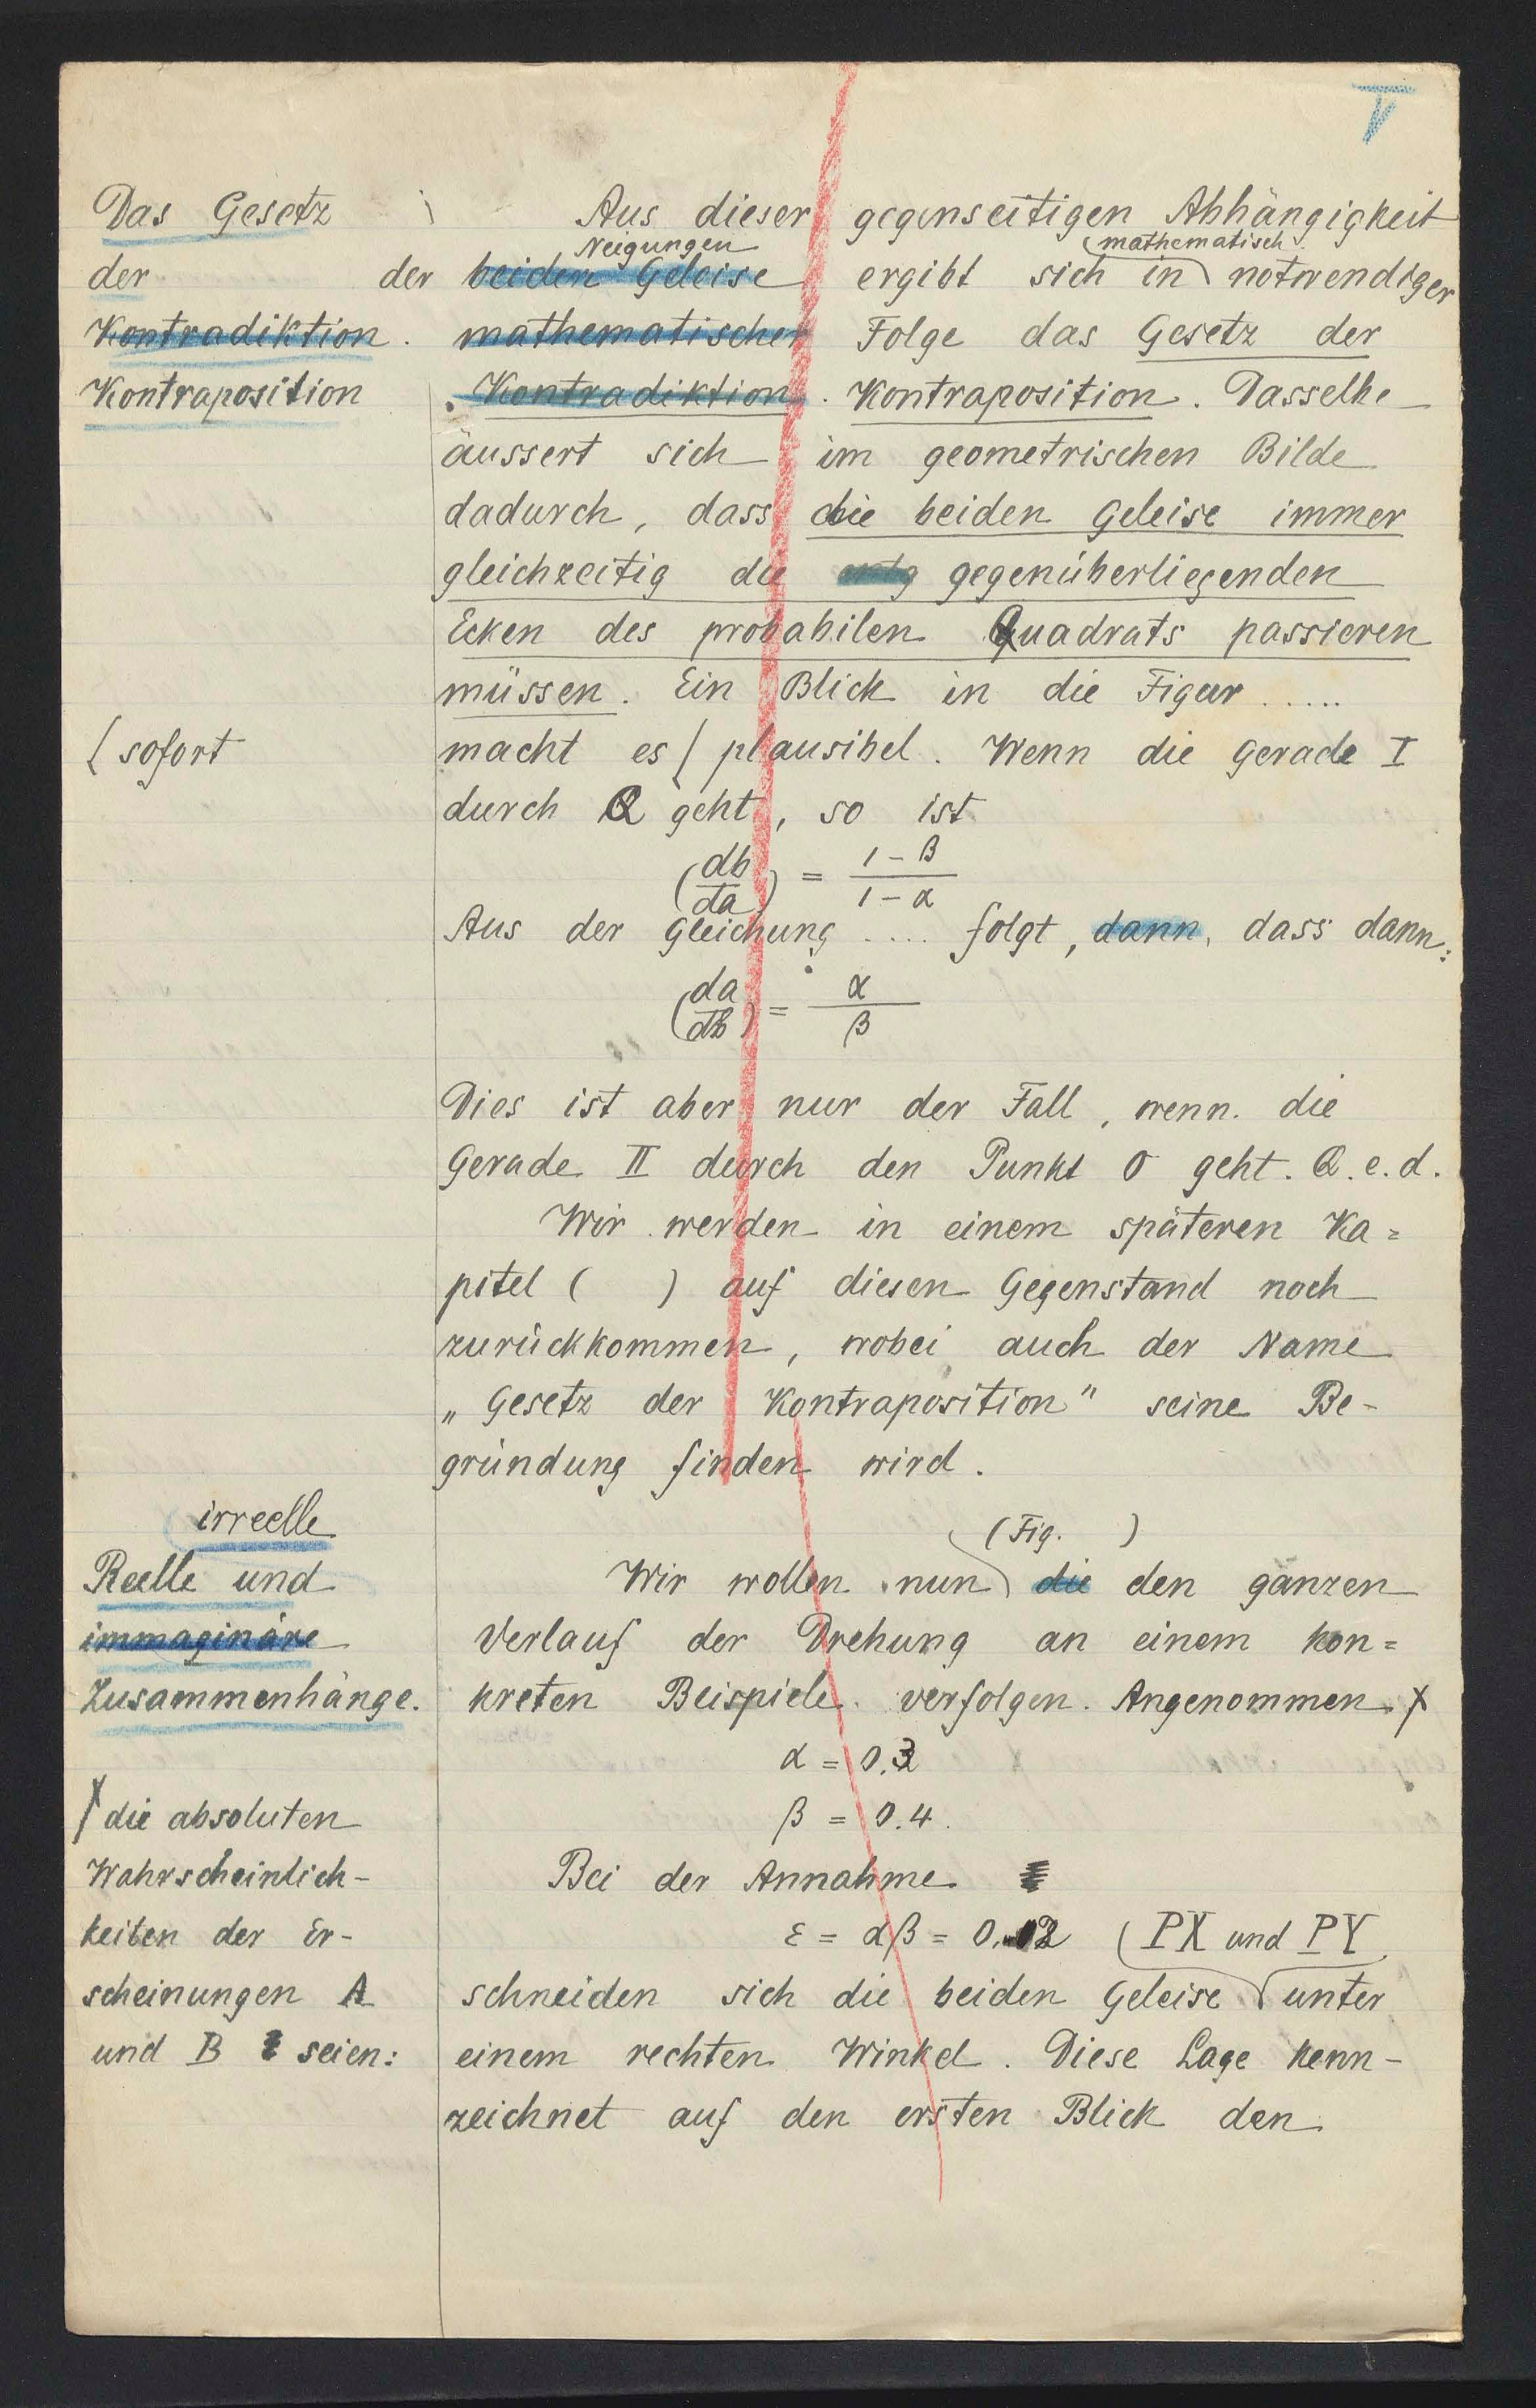 V
Das Gesetz
der
Kontradiktion.
Kontraposition
Aus dieser gegenseitigen Abhängigkeit
Neigungen (mathematisch
der beiden Geleise ergibt sich in notwendiger
mathematischer Folge das Gesetz der
Kontradiktion. Kontraposition. Dasselbe
äussert sich im geometrischen Bilde
dadurch, dass die beiden Geleise immer
gleichzeitig die entg gegenüberliegenden
Ecken des probabilen Quadrats passieren
müssen. Ein Blick in die Figur .....
{ sofort
macht es { plausibel. Wenn die Gerade I
durch Q geht, so ist
(db/da) = 1 - β / 1 - α
Aus der Gleichung .... folgt, dann, dass dann:
(da/db) = α / β
Dies ist aber nur der Fall, wenn die
Gerade II durch den Punkt O geht. Q.e.d.
Wir werden in einem späteren Ka=
pitel ( ) auf diesen Gegenstand noch
zurückkommen, wobei auch der Name
„Gesetz der Kontraposition" seine Be-
gründung finden wird.
irreelle
Reelle und
immaginäre
Zusammenhänge.
(Fig. )
Wir wollen nun die den ganzen
Verlauf der Drehung an einem kon=
kreten Beispiele verfolgen. Angenommen
α = 0.3
β = 0.4.
die absoluten
Wahrscheinlich-
keiten der Er-
scheinungen A
und B seien:
Bei der Annahme
ε = αβ = 0.12 (PX und PY
schneiden sich die beiden Geleise unter
einem rechten Winkel. Diese Lage kenn-
zeichnet auf den ersten Blick den